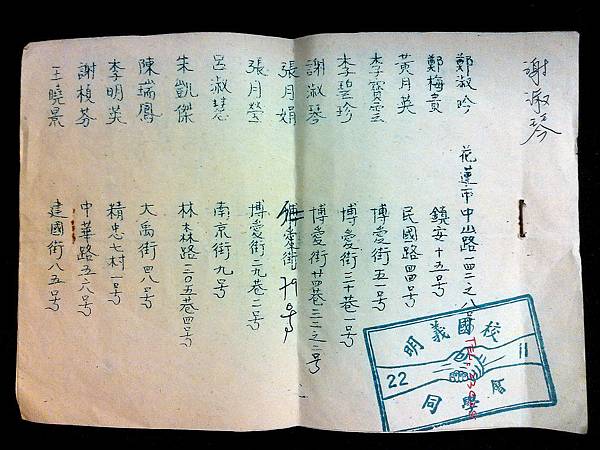 謝淑琴
鄭淑吟 花蓮市中山路一四二之八號
鄭梅貴 鎮安十五号
黄月英 民國路四四号
李寶雲 博愛街五一号
李碧珍 博愛街三十巷一号
謝淑琴 博愛街廿四巷三二之二号
張月娟 愛街 29号
張月瑩 博愛街二九巷二号
呂淑慧 南京街九号
朱凱傑 林森路二〇五巷四号
陳瑞鳳 大禹街四八号
李明英 精忠七村一号
謝楨芬 中華路五二六号
王曉景 建國街八五号
明義國校
22 11
同學會